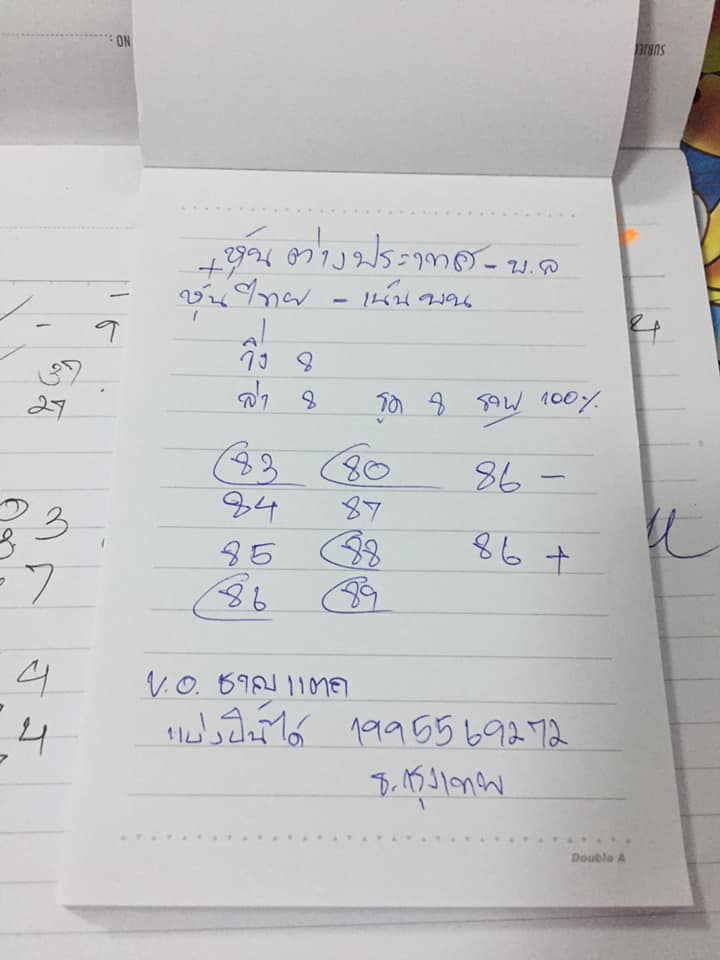 NO :
SUBJEC
หุ้นต่างประเทศ - บ.ล
+
หุ้นไทย - เน้นบน
วิ่ง 8
ล่า 8 รูด 8 100%
83 80 86 -
84 87
85 88 86 +
86 89
ข.อ.
แบ่งปันได้ 1995569272
ธ.กรุงเทพ
Double A
- 9
37
27
03
7
4
4